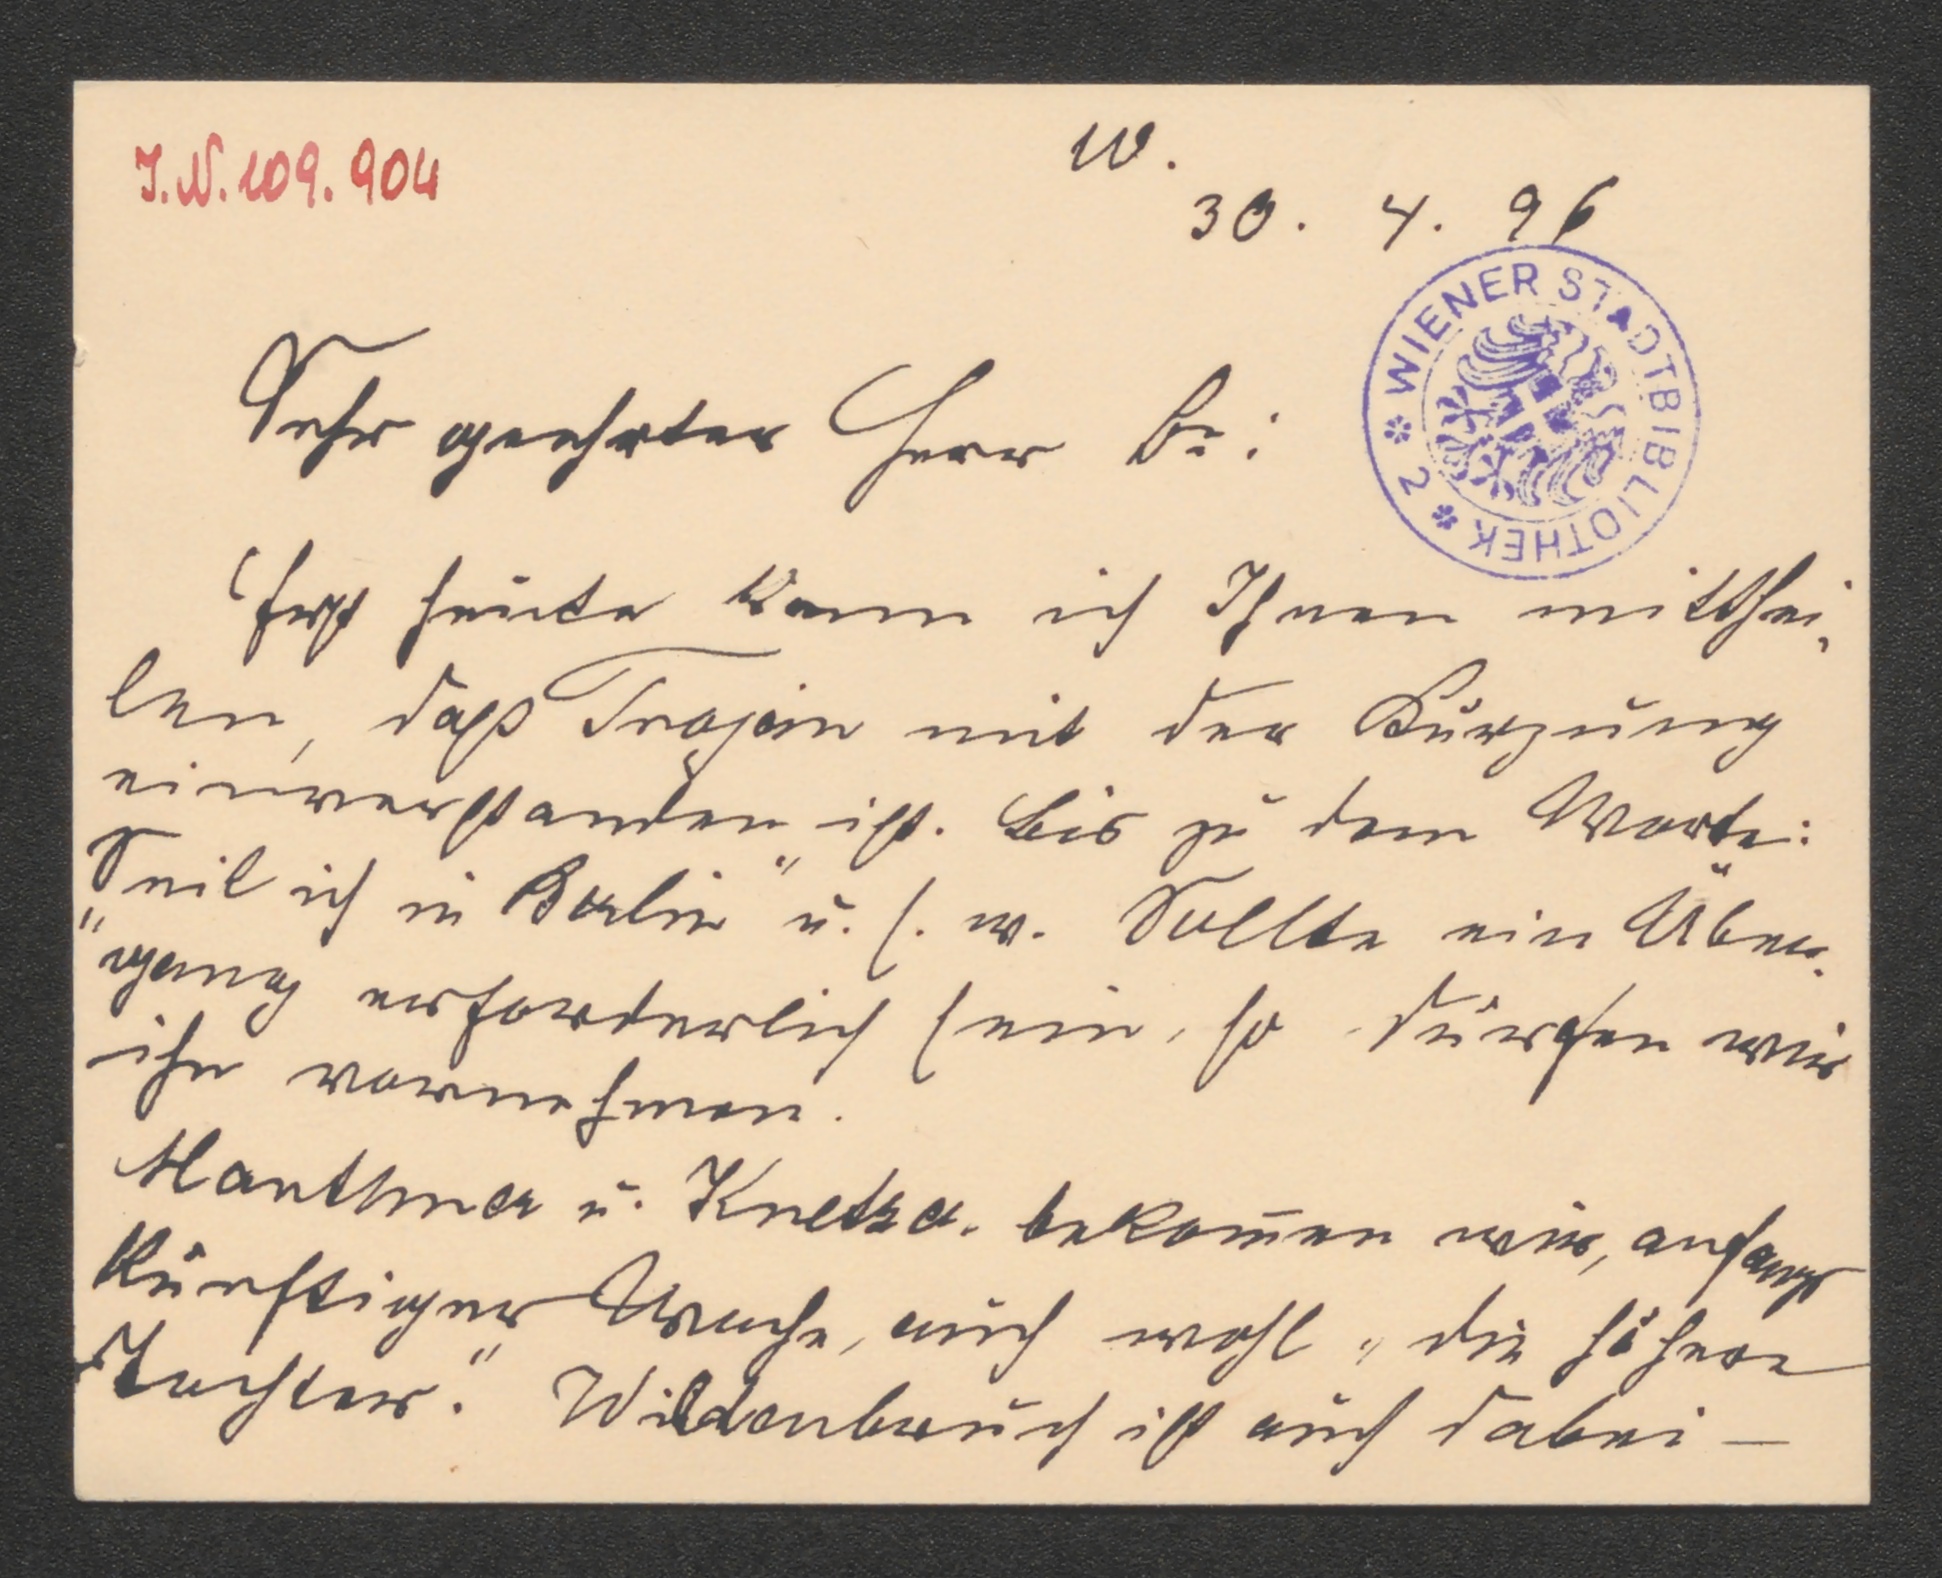 I.N. 109.904
W.
30. 4. 96
WIENER STADTBIBLIOTHEK 2
Sehr geehrter Herr Br:
Erst heute kann ich Ihnen mitthei-
len, daß Trojan mit der Kürzung
einverstanden ist. Bis zu dem Worte:
„Seit ich in Berlin" u. s. w. Sollte ein Über-
gang erforderlich sein, so dürfen wir
ihn vornehmen.
Mauthner u. bekom̅en wir, anfangs
künftiger Woche, auch wohl „die höhere
Tochter." Wildenbruch ist auch dabei —